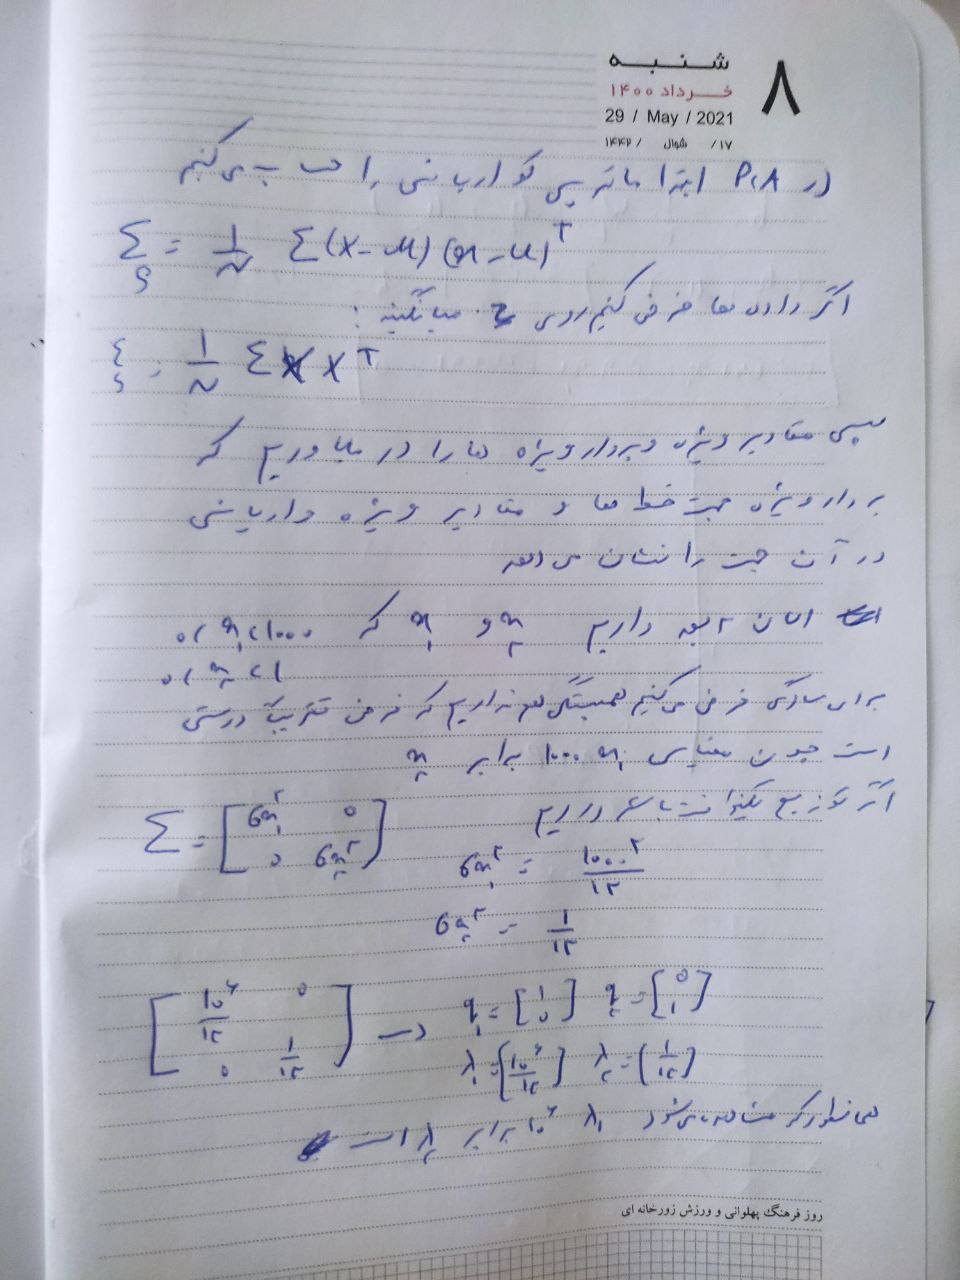 شنبه
۸
خرداد ۱۴۰۰
29 / May / 2021
۱۷/ شوال /۱۴۴۲
در PCA ابتدا ماتریس کواریانس را حساب می‌کنیم
Σ = 1/N Σ(x-μ)(x-μ)^T
اگر داده ها فرض کنیم روی میانگینه :
Σ = 1/N Σ x x^T
سپس مقادیر ویژه و بردار ویژه ها را در میاوریم که
بردار ویژه جهت خط ها و مقادیر ویژه واریانس
در آن جهت را نشان می دهد
الان ۲ بعد داریم x₁ و x₂ که ۰< x₁ <۱۰۰۰
۰< x₂ <۱
برای سادگی فرض می‌کنیم همبستگی هم نداریم که فرض تقریبا درستی
است چون مقیاس x₁ ۱۰۰۰ برابر x₂
اگر توزیع یکنواخت باشد داریم
Σ = [σx₁² 0 ; 0 σx₂²]
σx₁² = ۱۰۰۰²/۱۲
σx₂² = ۱/۱۲
[۱۰⁶/۱۲ 0 ; 0 ۱/۱۲] → q₁ = [1 ; 0] q₂ = [0 ; 1]
λ₁ = [۱۰⁶/۱۲] λ₂ = [۱/۱۲]
همانطور که مشاهده می‌شود λ₁ ۱۰⁶ برابر λ₂ است
روز فرهنگ پهلوانی و ورزش زورخانه ای